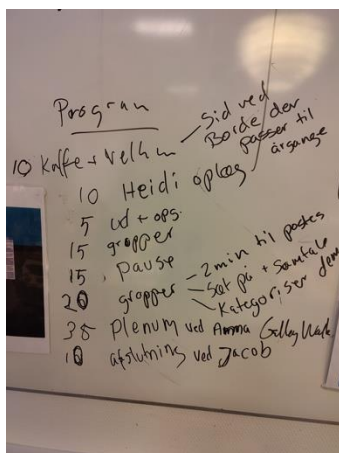 Program
10 Kaffe + Velkm - Sid ved Borde der passer til årgange
10 Heidi oplæg
5 ud + ops.
15 grupper
15 . Pause
20 grupper - 2 min til postes
- Sæt på + Samtale
- Kategoriser dem
35 Plenum ved Anna
10 afslutning ved Jacob